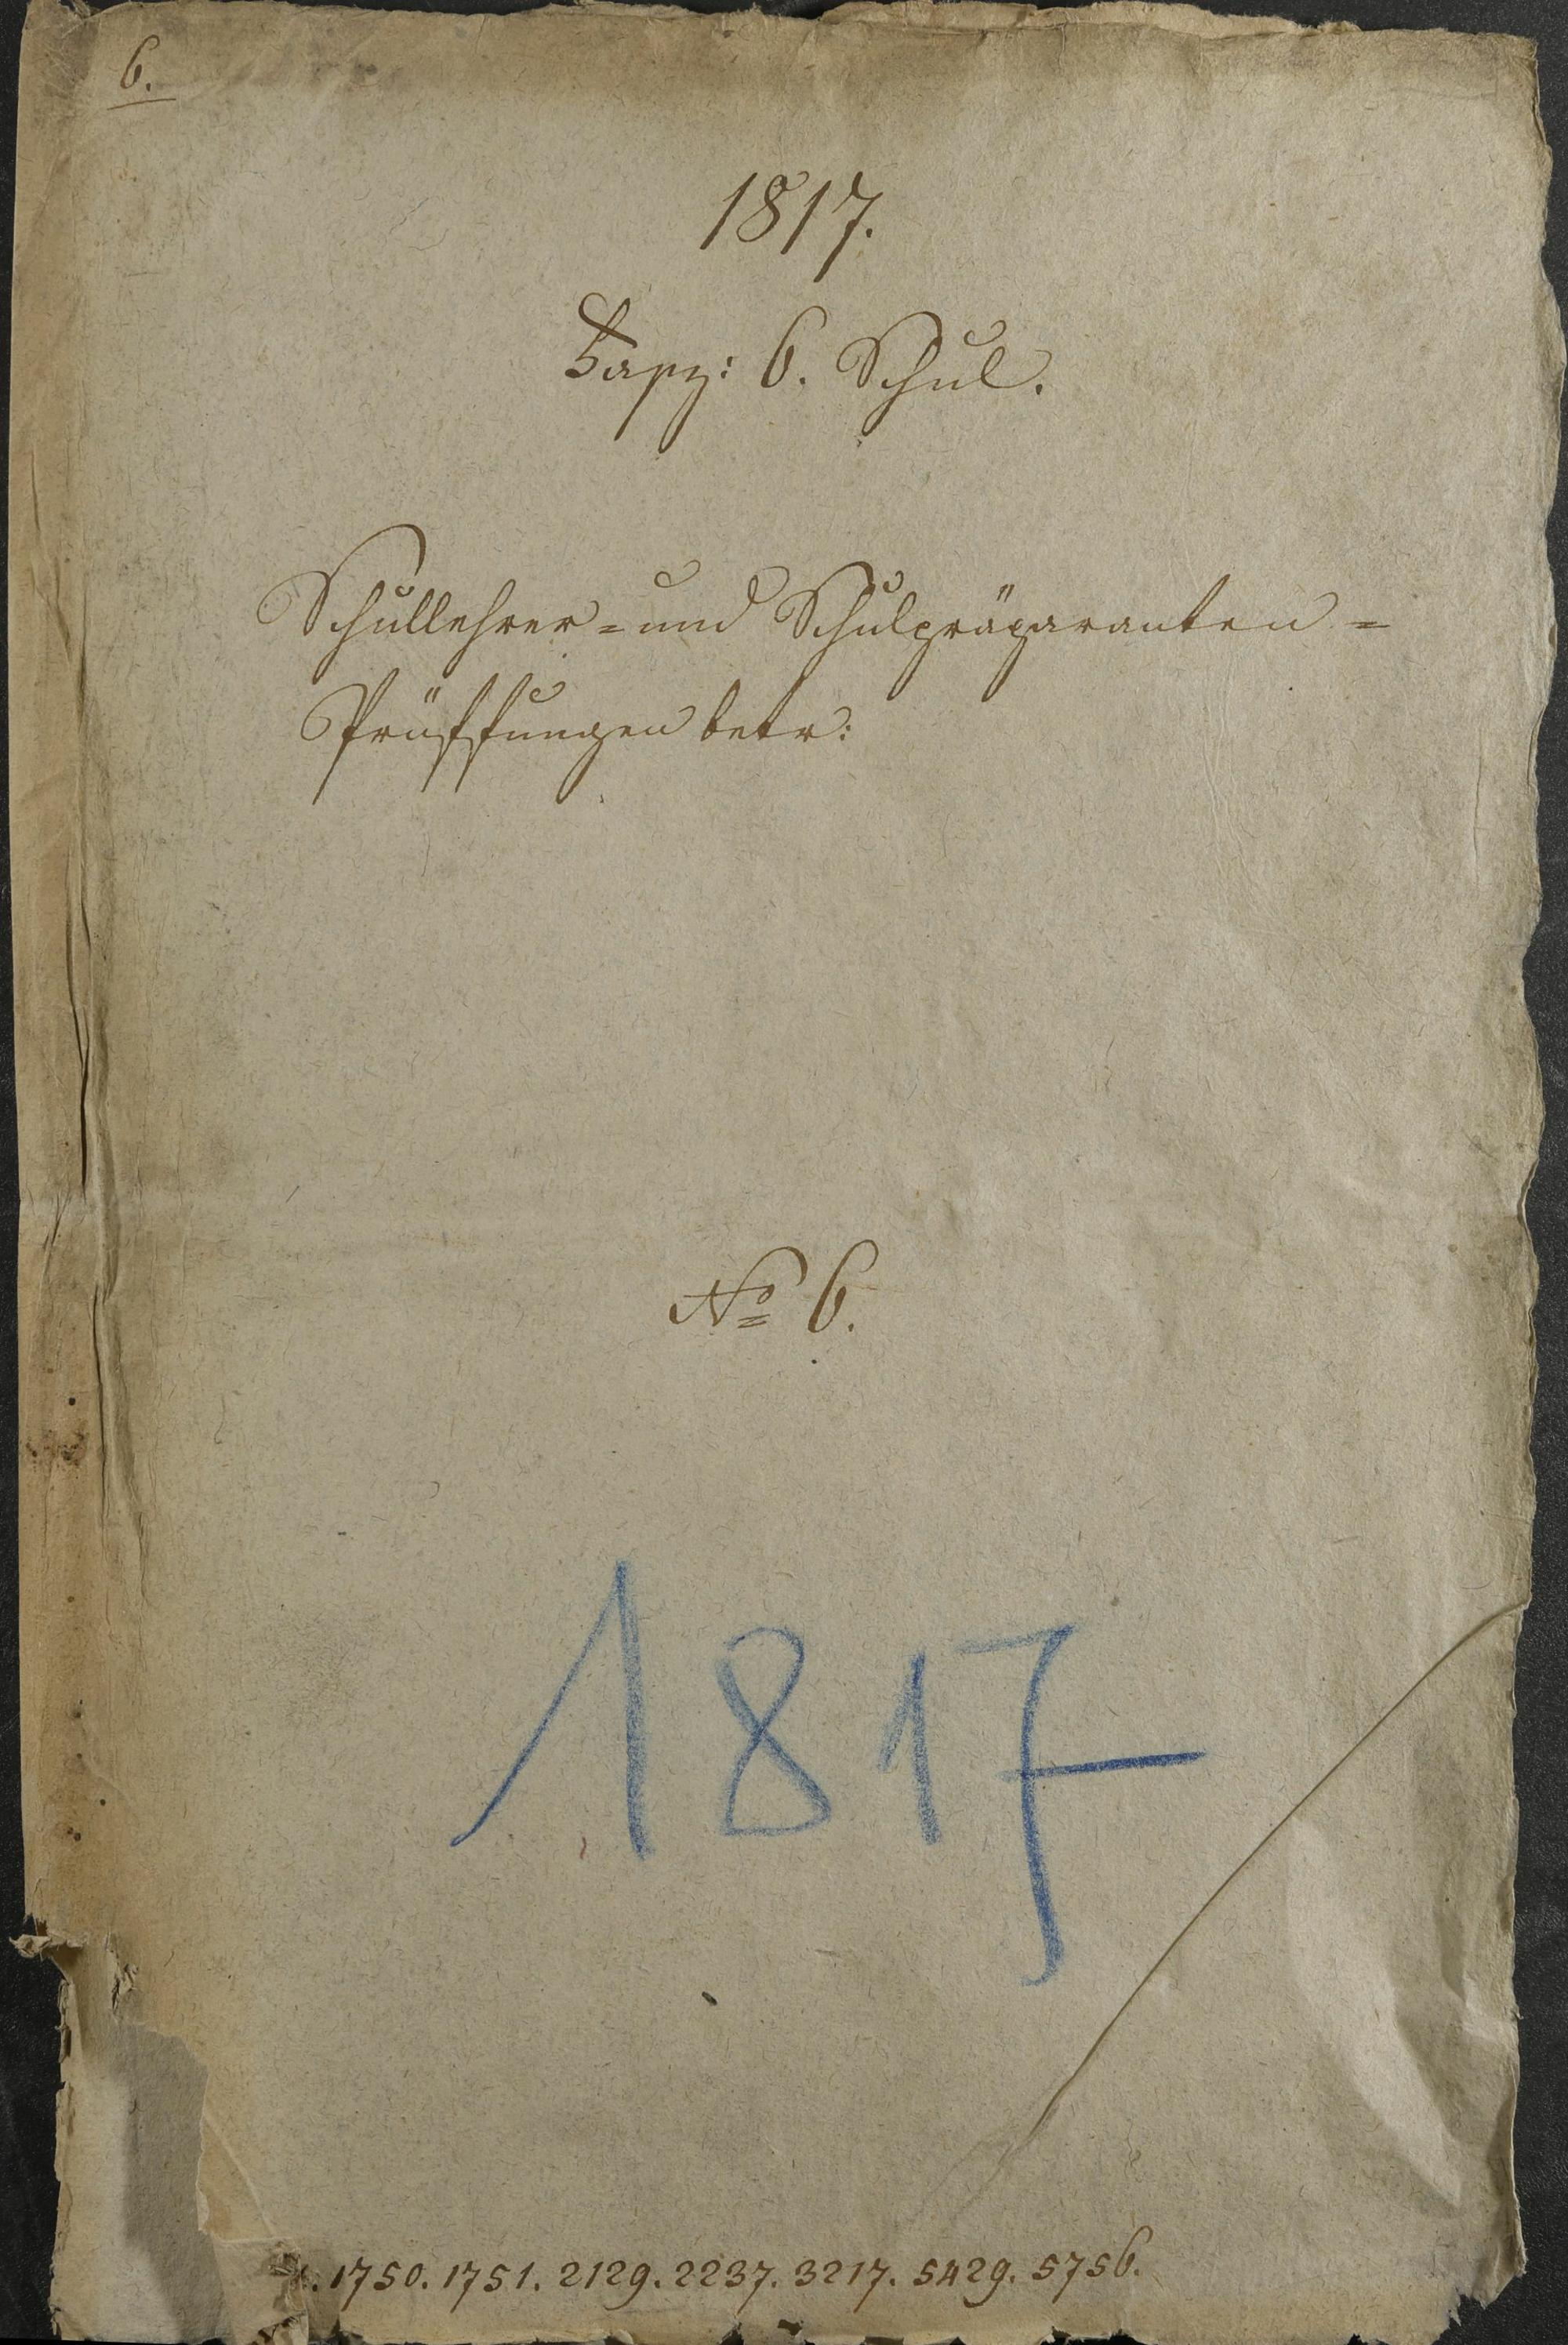 6.
1817.
Fasz: 6. Schul.
Schullehrer= und Schulpräparanten=
Prüffungen betr:
No 6.
1817
1750. 1751. 2129. 2237. 3217. 5429. 5756.